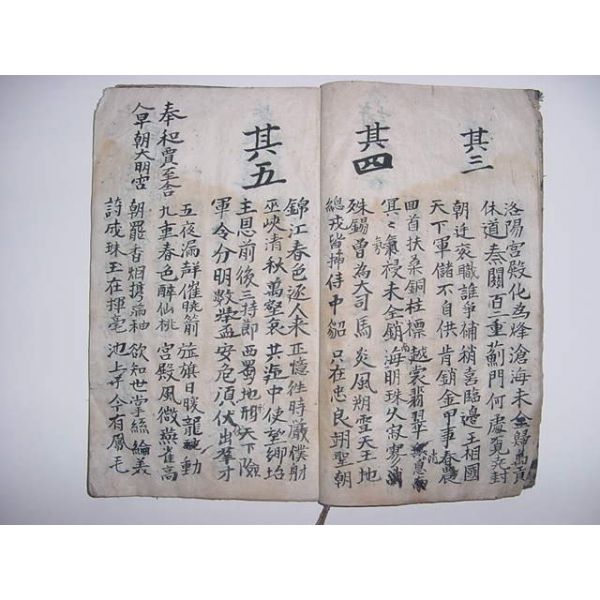 其三
洛陽宮殿化為烽 滄海未全歸禹貢
休道秦關百二重 薊門何處覓尭封
朝廷袞職誰爭補 稍喜臨邊王相國
天下軍儲不自供 肯銷金甲事春農
其四
回首扶桑銅柱標 越裳翡翠無消息
冥々氛祲未全銷 南海明珠久寂寥
殊錫曾為大司馬 炎風朔雪天王地
總戎皆插侍中貂 只在忠良翊聖朝
其五
錦江春色逐人來 正憶往時嚴僕射
巫峽清秋萬壑哀 共迎中使望鄉臺
主恩前後三持節 西蜀地形天下險
軍令分明數舉盃 安危須仗出群才
奉和賈至舍
人早朝大明宮
五夜漏聲催曉箭 旌旗日暖龍蛇動
九重春色醉仙桃 宮殿風微燕雀高
朝罷香烟攜滿袖 欲知世掌絲綸美
詩成珠玉在揮毫 池上于今有鳳毛